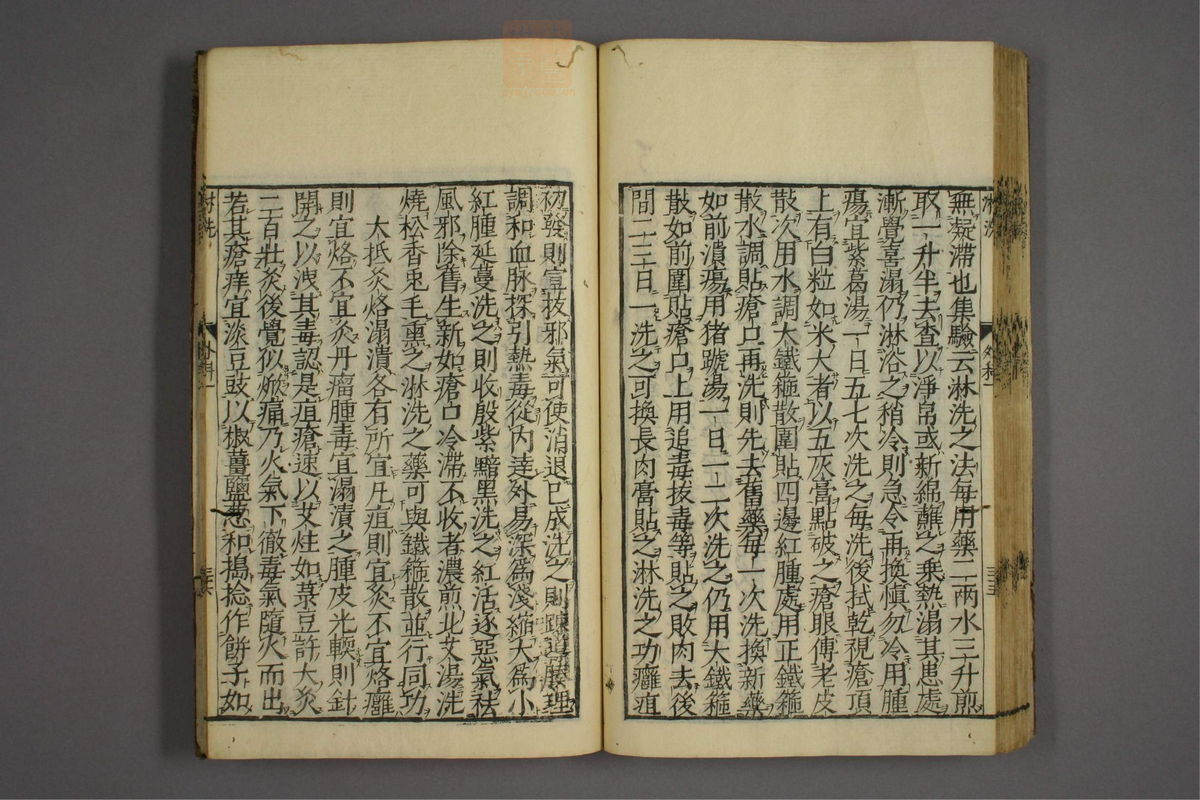 無凝滯也集驗云淋洗之法每用藥二兩水三升煎
取一升半去査以淨帛或新綿蘸之乗熱溻其患處
漸覺喜溻仍淋浴之稍冷則急令再換愼勿冷用腫
瘍宜紫葛湯一日五七次洗之每洗後拭乾視瘡頂
上有白粒如米大者以五灰膏點破之瘡眼傳老皮
散次用水調大鐵箍散圍貼四邊紅腫處用正鐵箍
散水調貼瘡口再洗則先去舊藥每一次洗換新藥
如前潰瘍用猪蹄湯一日一二次洗之仍用大鐵箍
散如前圍貼瘡口上用追毒拔毒等貼之敗肉去後
間二三日一洗之可換長肉膏貼之淋洗之功癰疽
外科一
初發則宣拔邪氣可使消退已成洗之則疎導腠理
調和血脉探引熱毒從内達外易深爲淺縮大爲小
紅腫延蔓洗之則收殷紫黯黑洗之紅活逐惡氣祛
風邪除舊生新如瘡口冷滯不收者濃煎北艾湯洗
燒松香兎毛熏之淋洗之藥可與鐵箍散並行同功
大抵灸烙溻漬各有所宜凡疽則宜灸不宜烙癰
則宜烙不宜灸丹瘤腫毒宜溻漬之腫皮光輭則針
開之以洩其毒認是疽瘡速以艾炷如菉豆許大灸
二百壯灸後覺似焮痛乃火氣下徹毒氣隨火而出
若其瘡痒宜淡豆豉以椒薑鹽葱和搗捻作餅子如